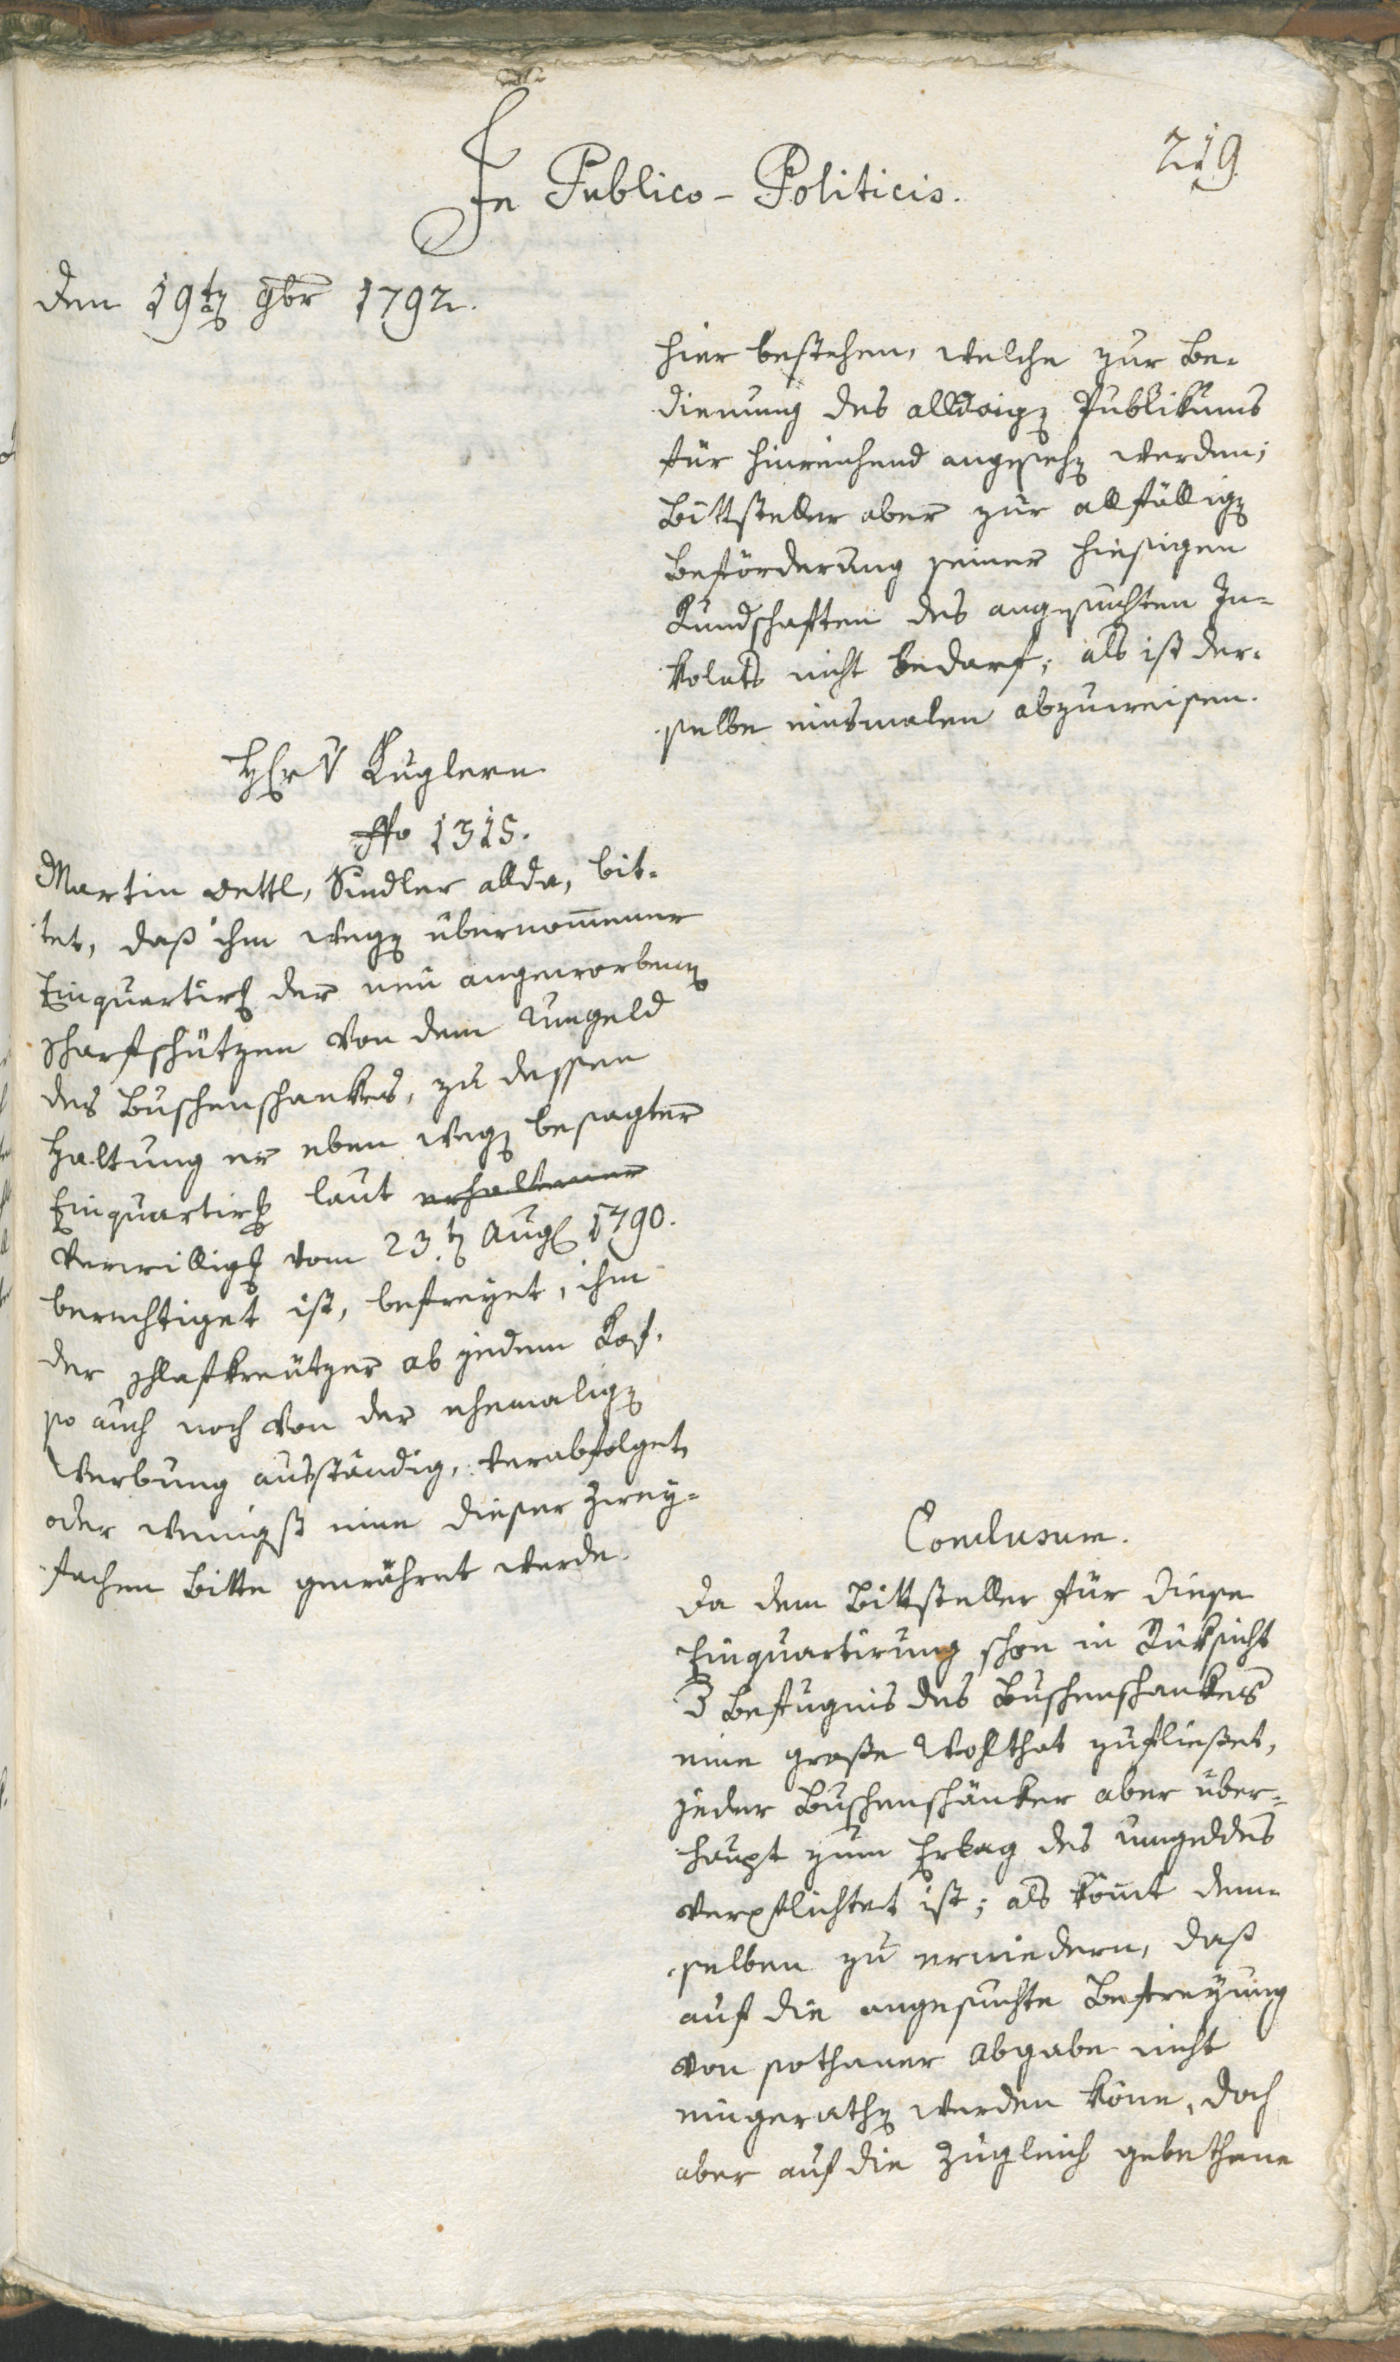 219
In Publico-Politicis.
den 19ten 9br 1792.
hier bestehen, welche zur Be-
dienung des alldaigen Publikums
für hinreichend angesehen werden;
Bittsteller aber zur allfälligen
Beförderung seiner hiesigen
Kundschaften des angesuchten In-
kolats nicht bedarf; als ist der-
selbe einsmalen abzuweisen.
Herr v Kuglern
No 1315.
Martin Oettl, Sindler allda, bit-
tet, daß ihm wegen übernom̅ener
Einquartirung der neu angeworbenen
Scharfschützen von dem Umgeld
des Buschenschankes, zu dessen
Haltung er eben wegen besagter
Einquartirung laut erhaltener
Verwilligung vom 23.ten Aug 1790.
berechtiget ist, befreyet, ihm
der Schlafkreutzer ab jedem Kof.
so auch noch von der ehemaligen
Werbung ausständig, verabfolget,
oder wenigst eine dieser zwey-
fachen Bitte gewähret werde.
Conclusum.
Da dem Bittsteller für diese
Einquartirung schon in Rüksicht
der Befugnis des Buschenschankes
eine große Wohlthat zufließet,
jeder Buschenschänker aber über-
haupt zum Erlag des Umgeldes
verpflichtet ist; als kom̅t dem-
selben zu erwiedern, daß
auf die angesuchte Befreyung
von sothaner Abgabe nicht
eingerathen werden kön̅e, doch
aber auf die zugleich gebethene